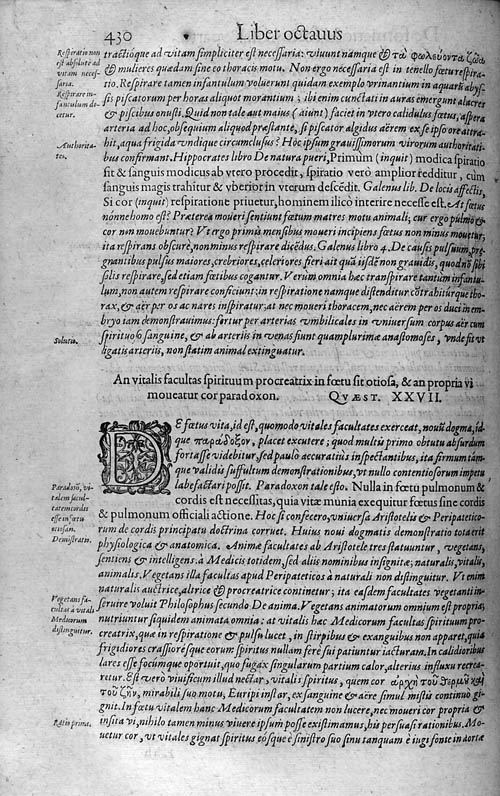 430 Liber octavus
Respiratio non
est absolutè ad
vitam neces-
saria.
Respirare in-
fantulum do-
cetur.
Authorita-
tes.
Solutio.
Paradoxũ, vi-
talem facul-
tatem cordis
esse in fœtu
ociosam.
Demonstratio.
Vegetans fa-
cultas à vitali
Medicorum
distinguitur.
Ratio prima.
tractióque ad vitam simpliciter est necessaria: viuunt namque & τὰ φωλεύοντα ζῶα
& mulieres quædam sine eo thoracis motu. Non ergo necessaria est in tenello fœtu respira-
tio. Respirare tamen infantulum voluerunt quidam exemplo vrinantium in aquarũ abys-
sis piscatorum per horas aliquot morantium; ibi enim cunctati in auras emergunt alacres
& piscibus onusti. Quid non tale aut maius (aiunt) faciet in vtero calidulus fœtus, aspera
arteria ad hoc, obsequium aliquod præstante, si piscator algidus aërem ex se ipso ore attra-
hit, aqua frigida vndique circumclusus? Hoc ipsum grauissimorum virorum authoritati-
bus confirmant. Hippocrates libro De natura pueri, Primùm (inquit) modica spiratio
fit & sanguis modicus ab vtero procedit, spiratio verò amplior redditur, cum
sanguis magis trahitur & vberior in vterum descẽdit. Galenus lib. De locis affectis,
Si cor (inquit) respiratione priuetur, hominem ilicò interire necesse est. At fœtus
nónne homo est? Præterea moueri sentiunt fœtum matres motu animali, cur ergo pulmo &
cor non mouebuntur? Vt ergo primis mensibus moueri incipiens fœtus non minus mouetur,
ita respirans obscurè, non minus respirare dicẽdus. Galenus libro 4. De causis pulsuum, præ-
gnantibus pulsus maiores, crebriores, celeriores fieri ait quã iisdẽ non grauidis, quod nõ sibi
solis respirare, sed etiam fœtibus cogantur. Verum omnia hæc transpirare tantùm infantu-
lum, non autem respirare conficiunt: in respiratione namque distenditur cõtrahitúrque tho-
rax, & aër per os ac nares inspiratur, at nec moueri thoracem, nec aërem per os duci in em-
bryo iam demonstrauimus: fertur per arterias vmbilicales in vniuersum corpus aër cum
spirituoso sanguine, & ab arteriis in venas fiunt quamplurimæ anastomoses, vnde fit vt
ligatis arteriis, non statim animal extinguatur.
An vitalis facultas spirituum procreatrix in fœtu sit otiosa, & an propria vi
moueatur cor paradoxon. QVÆST. XXVII.
DE fœtus vita, id est, quomodo vitales facultates exerceat, nouũ dogma, id-
que παράδοξον, placet excutere; quod multis primo obtutu absurdum
fortasse videbitur, sed paulò accuratiùs inspectantibus, ita firmum tám-
que validis suffultum demonstrationibus, vt nullo contentiosorum impetu
labefactari possit. Paradoxon tale esto. Nulla in fœtu pulmonum &
cordis est necessitas, quia vitæ munia exequitur fœtus sine cordis
& pulmonum officiali actione. Hoc si confecero, vniuersa Aristotelis & Peripateticо-
rum de cordis principatu doctrina corruet. Huius noui dogmatis demonstratio tota erit
physiologica & anatomica. Animæ facultates ab Aristotele tres statuuntur, vegetans,
sentiens & intelligens: à Medicis totidem, sed aliis nominibus insignitæ; naturalis, vitalis,
animalis. Vegetans illa facultas apud Peripateticos à naturali non distinguitur. Vt enim
naturalis auctrice, altrice & procreatrice continetur; ita easdem facultates vegetanti in-
seruire voluit Philosophus secundo De anima. Vegetans animatorum omnium est propria,
nutriuntur siquidem animata omnia: at vitalis hæc Medicorum facultas spirituum pro-
creatrix, quæ in respiratione & pulsu lucet, in stirpibus & exanguibus non apparet, quia
frigidiores crassiorésque eorum spiritus nullam ferè sui patiuntur iacturam. In calidioribus
lares esse focúmque oportuit, quo fugax singularum partium calor, alterius influxu recrea-
retur. Est verò viuificum illud nectar, vitalis spiritus, quem cor ἀρχὴ τοῦ θερμοῦ καὶ
τοῦ ζῆν, mirabili suo motu, Euripi instar, ex sanguine & aëre simul mistis continuò gi-
gnit. In fœtu vitalem hanc Medicorum facultatem non lucere, nec moueri cor propria &
insita vi, nihilo tamen minus viuere ipsum posse existimamus, his persuasi rationibus. Mo-
uetur cor, vt vitales gignat spiritus eósque è sinistro suo sinu tanquam è iugi fonte in aortæ